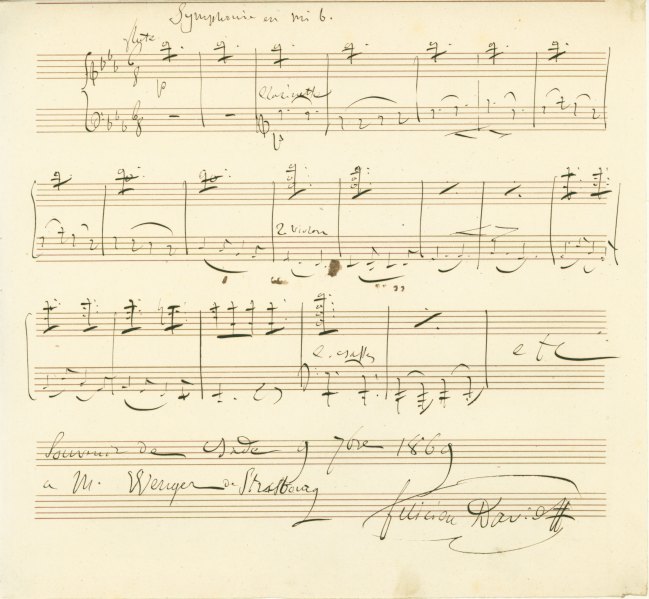 Symphonie en mi b.
flute
Clarinette
2 Violon
etc
Souvenir de Bade 9 7bre 1869
a M. Wenger de Strasbourg
Félicien David